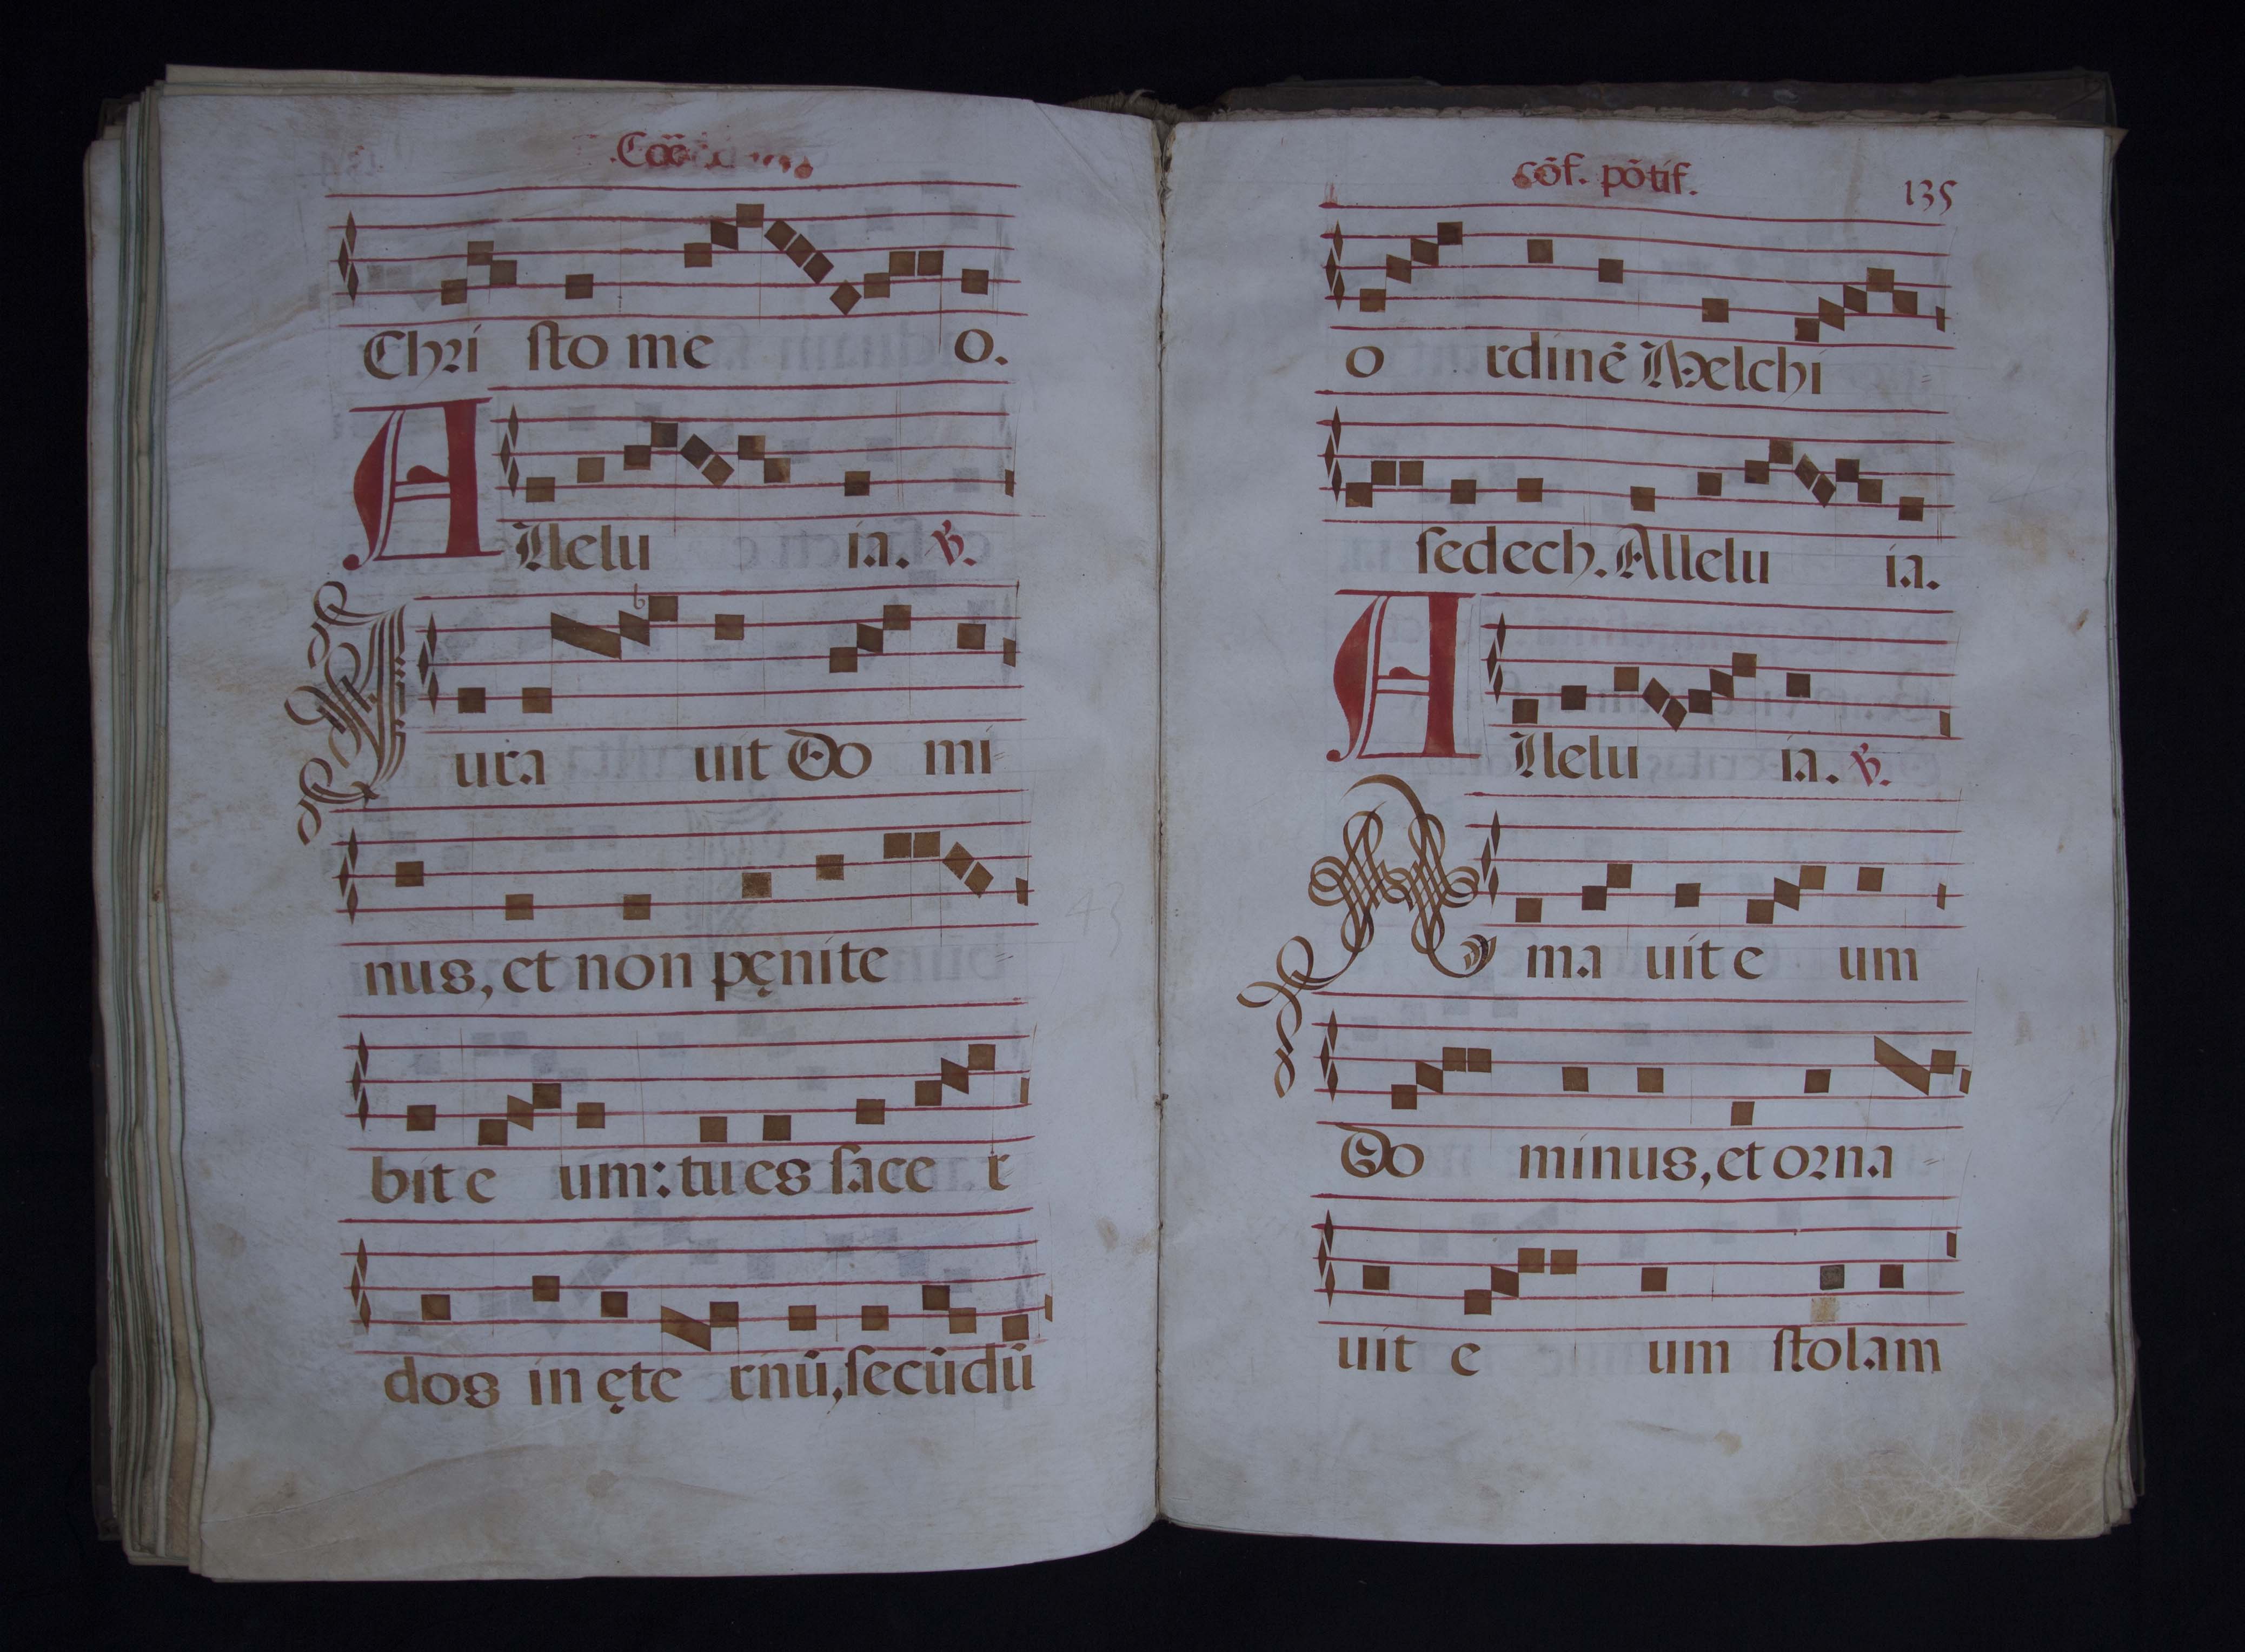 Chri sto me o.
Allelu ia. ℣.
Iura uit Do mi=
nus, et non pęnite =
bit e um: tu es sace r=
dos in ęte rnū, secūdū
cōf. pōtif. 135
o rdinē Melchi
sedech. Allelu ia.
Allelu ia. ℣.
A ma uit e um
Do minus, et orna=
uit e um stolam